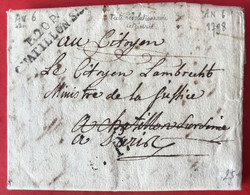 An 6
P.20.P.
CHATILLON S.S.
AN 6
1798
au Citoyen
Le Citoyen Lambrechts
Ministre de la Justice
a Chatillon Sur Seine
a Paris
25